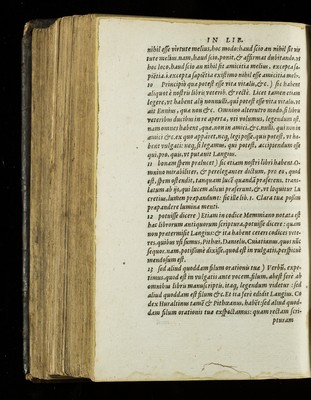 IN LIB.
nihil esse virtute melius, hoc modo: haud scio an nihil sit vir
tute melius. nam, haud scio, ponit, & affirmat dubitando. et
hoc loco, haud scio an nihil sit amicitia melius, excepta sa-
piẽtia. i. excepta sapiẽtia existimo nihil esse amicitia meli9.
10 Principiò qua potest esse vita vitalis, &c. ) sic habent
aliquot è nostris libris veterib. & rectè. Licet tamen etiam
legere, vt habent alij nonnulli, qui potest esse vita vitalis, vt
ait Ennius, qua non &c. Omnino alterutro modo, si libris
veteribus ducibus in re aperta, vti volumus, legendum est.
nam omnes habent, qua, non in amici, & c. nulli, qui non in
amici &c. ex quo apparet, neq; legi posse, quis potest, vt ha-
bent vulgati: neq; si legamus, qui potest, accipiendum esse
qui, pro, quis, vt putauit Langius.
11 bonam spem praelucet ) sic etiam nostri libri habent. O-
mnino mirabiliter, & pereleganter dictum, pro eo, quod
est, spem ostendit, tamquam lucẽ quandã praeferens, trans-
latum ab ijs, qui lucem alicui praeferunt, &, vt loquitur Lu
cretius, lumen prapandunt: sic ille lib. 1. Clara tuae possim
prapandere lumina menti.
12 potuisse dicere ) Etiam in codice Memmiano notata est
hac librorum antiquorum scriptura, potuisse dicere : quam
non pretermisit Langius: & ita habent ceteri codices vete-
res, quibus vsi sumus, Pithœi, Danielis, Cuiatianus, quos nũc
sequor. nam, potissimè dixisse, quod est in vulgatis, perspicuè
mendosum est.
13 sed aliud quoddam filum orationis tuae ) Verbũ, expe-
timus, quod est in vulgatis ante vocem, filum, abest ferè ab
omnibus libris manuscriptis. itaq, legendum videtur : sed
aliud quoddam est filum &c. Et ita ferè edidit Langius. Co
dex Huraltinus tamẽ & Pithœanus, habẽt: sed aliud quod-
dam filum orationis tuae exspectamus: quam rectam scri-
pturam